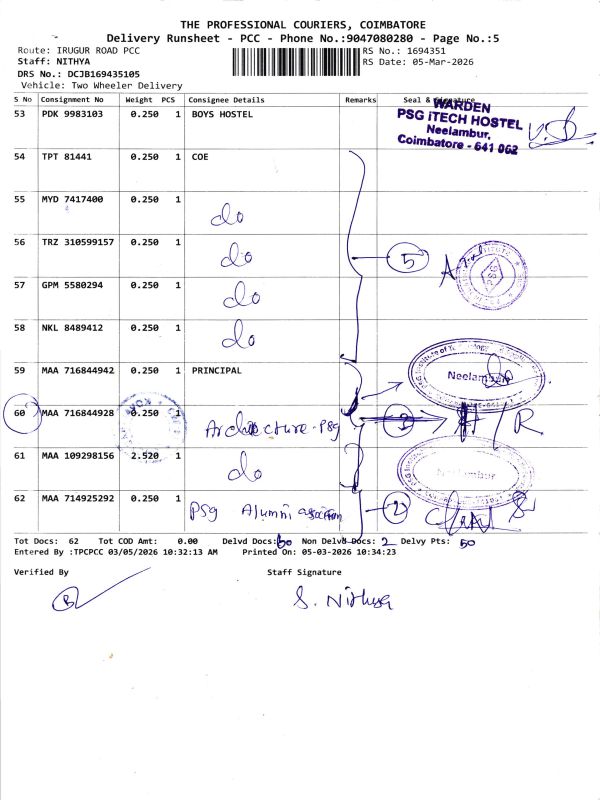 THE PROFESSIONAL COURIERS, COIMBATORE
Delivery Runsheet - PCC - Phone No.:9047080280 - Page No.:5
Route: IRUGUR ROAD PCC
RS No.: 1694351
Staff: NITHYA
RS Date: 05-Mar-2026
DRS No.: DCJB169435105
Vehicle: Two Wheeler Delivery
S No Consignment No Weight PCS Consignee Details Remarks Seal & Signature
53 PDK 9983103 0.250 1 BOYS HOSTEL
WARDEN
PSG iTECH HOSTEL
Neelambur,
Coimbatore - 641 062
54 TPT 81441 0.250 1 COE
55 MYD 7417400 0.250 1 do
56 TRZ 310599157 0.250 1 do
5
57 GPM 5580294 0.250 1 do
58 NKL 8489412 0.250 1 do
59 MAA 716844942 0.250 1 PRINCIPAL
Neelambur
60 MAA 716844928 0.250 1 Architecture - PSG
3
61 MAA 109298156 2.520 1 do
Neelambur
62 MAA 714925292 0.250 1 PSG Alumni
2
Tot Docs: 62 Tot COD Amt: 0.00 Delvd Docs: 60 Non Delvd Docs: 2 Delvy Pts: 50
Entered By :TPCPCC 03/05/2026 10:32:13 AM Printed On: 05-03-2026 10:34:23
Verified By Staff Signature
S. Nithya